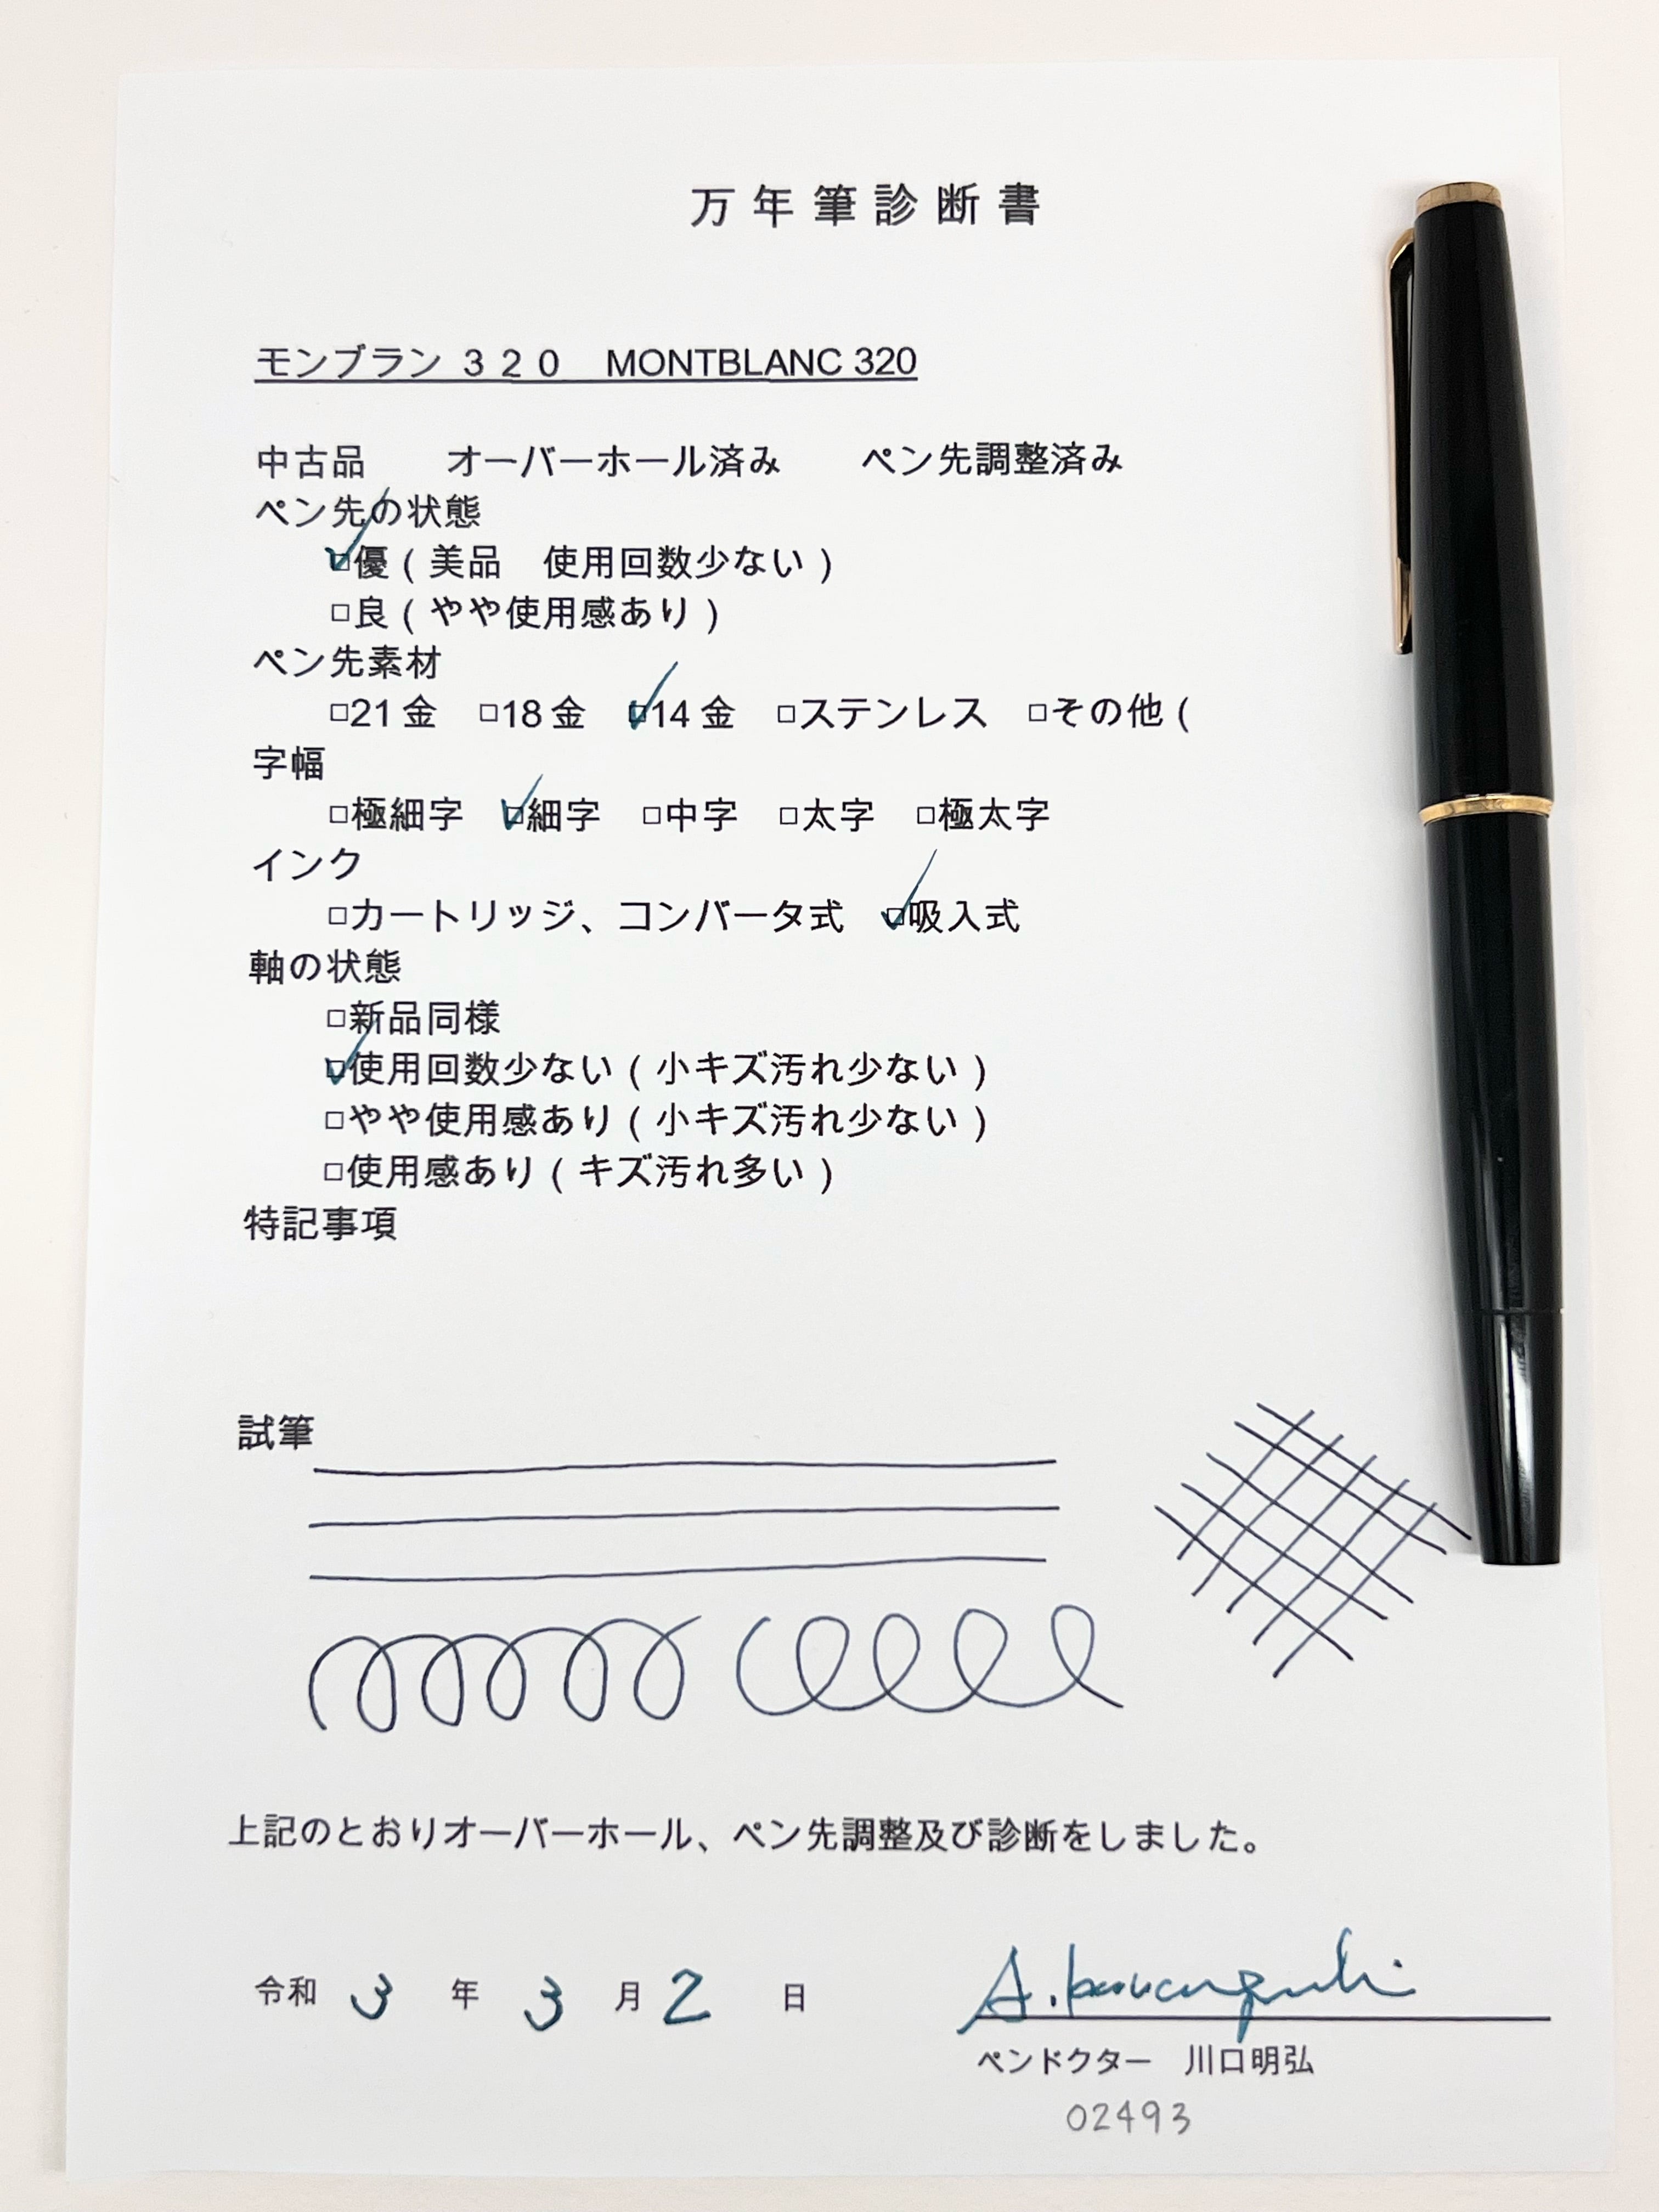 万年筆診断書
モンブラン 320 MONTBLANC 320
中古品 オーバーホール済み ペン先調整済み
ペン先の状態
☑優(美品 使用回数少ない)
□良(やや使用感あり)
ペン先素材
□21金 □18金 ☑14金 □ステンレス □その他(
字幅
□極細字 ☑細字 □中字 □太字 □極太字
インク
□カートリッジ、コンバータ式 ☑吸入式
軸の状態
□新品同様
☑使用回数少ない(小キズ汚れ少ない)
□やや使用感あり(小キズ汚れ少ない)
□使用感あり(キズ汚れ多い)
特記事項
試筆
上記のとおりオーバーホール、ペン先調整及び診断をしました。
令和 3 年 3 月 2 日
A. Kawaguchi
ペンドクター 川口明弘
02493